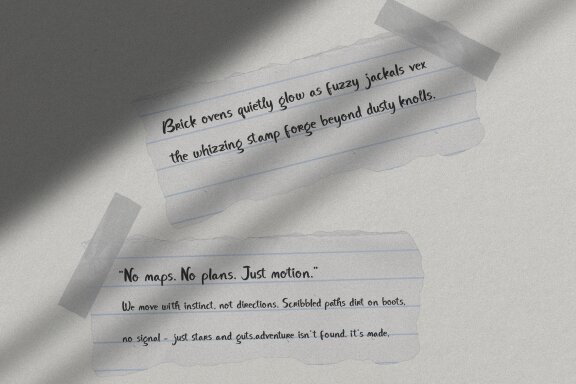 Brick ovens quietly glow as fuzzy jackals vex
the whizzing stamp forge beyond dusty knolls.
"No maps. No plans. Just motion."
We move with instinct, not directions. Scribbled paths dirt on boots,
no signal - just stars and guts.adventure isn't found. it's made,